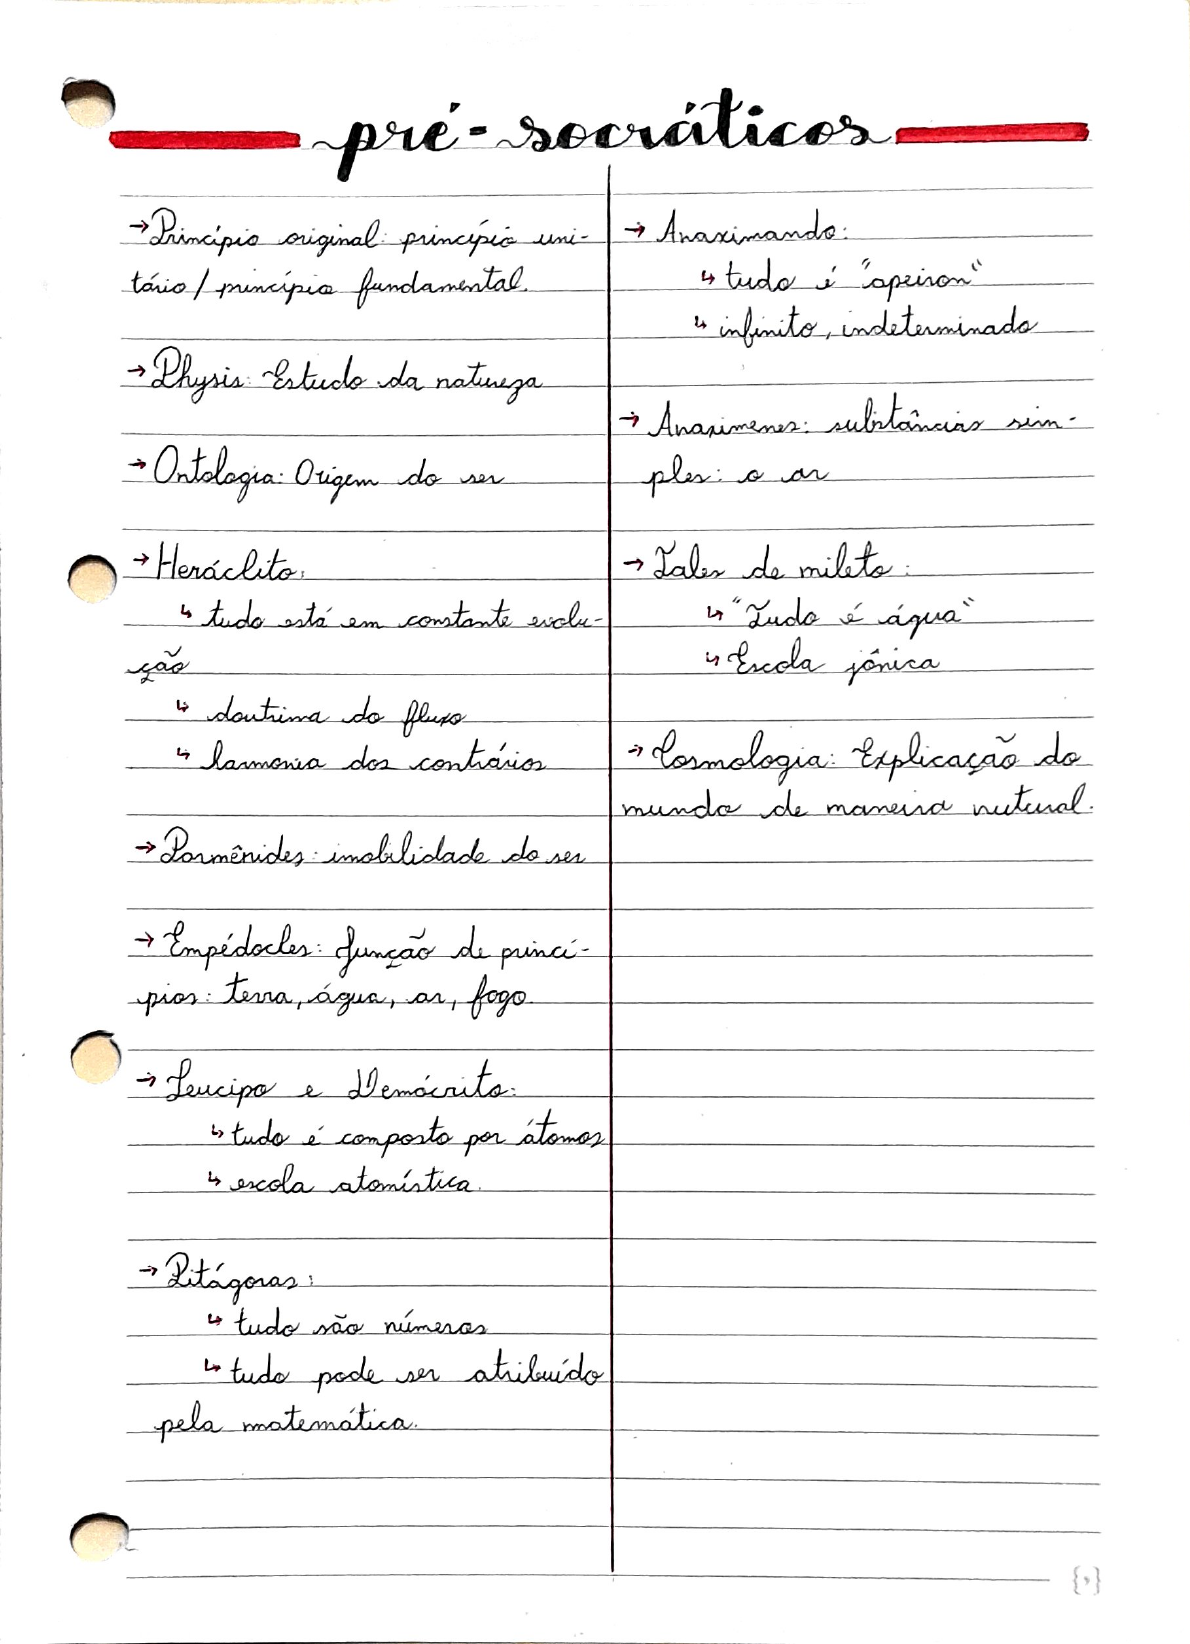 pré-socráticos
→ Princípio original: princípio uni-
tário / princípio fundamental.
→ Physis: Estudo da natureza
→ Ontologia: Origem do ser
→ Heráclito:
↳ tudo está em constante evolu-
ção
↳ doutrina do fluxo
↳ harmonia dos contrários
→ Parmênides: imobilidade do ser
→ Empédocles: função de princí-
pios: terra, água, ar, fogo.
→ Leucipo e Demócrito:
↳ tudo é composto por átomos
↳ escola atomística.
→ Pitágoras:
↳ tudo são números
↳ tudo pode ser atribuído
pela matemática.
→ Anaximando:
↳ tudo é "apeiron"
↳ infinito, indeterminado
→ Anaximenes: substâncias sim-
ples: o ar
→ Tales de mileto:
↳ "Tudo é água"
↳ Escola jônica
→ Cosmologia: Explicação do
mundo de maneira nutural.